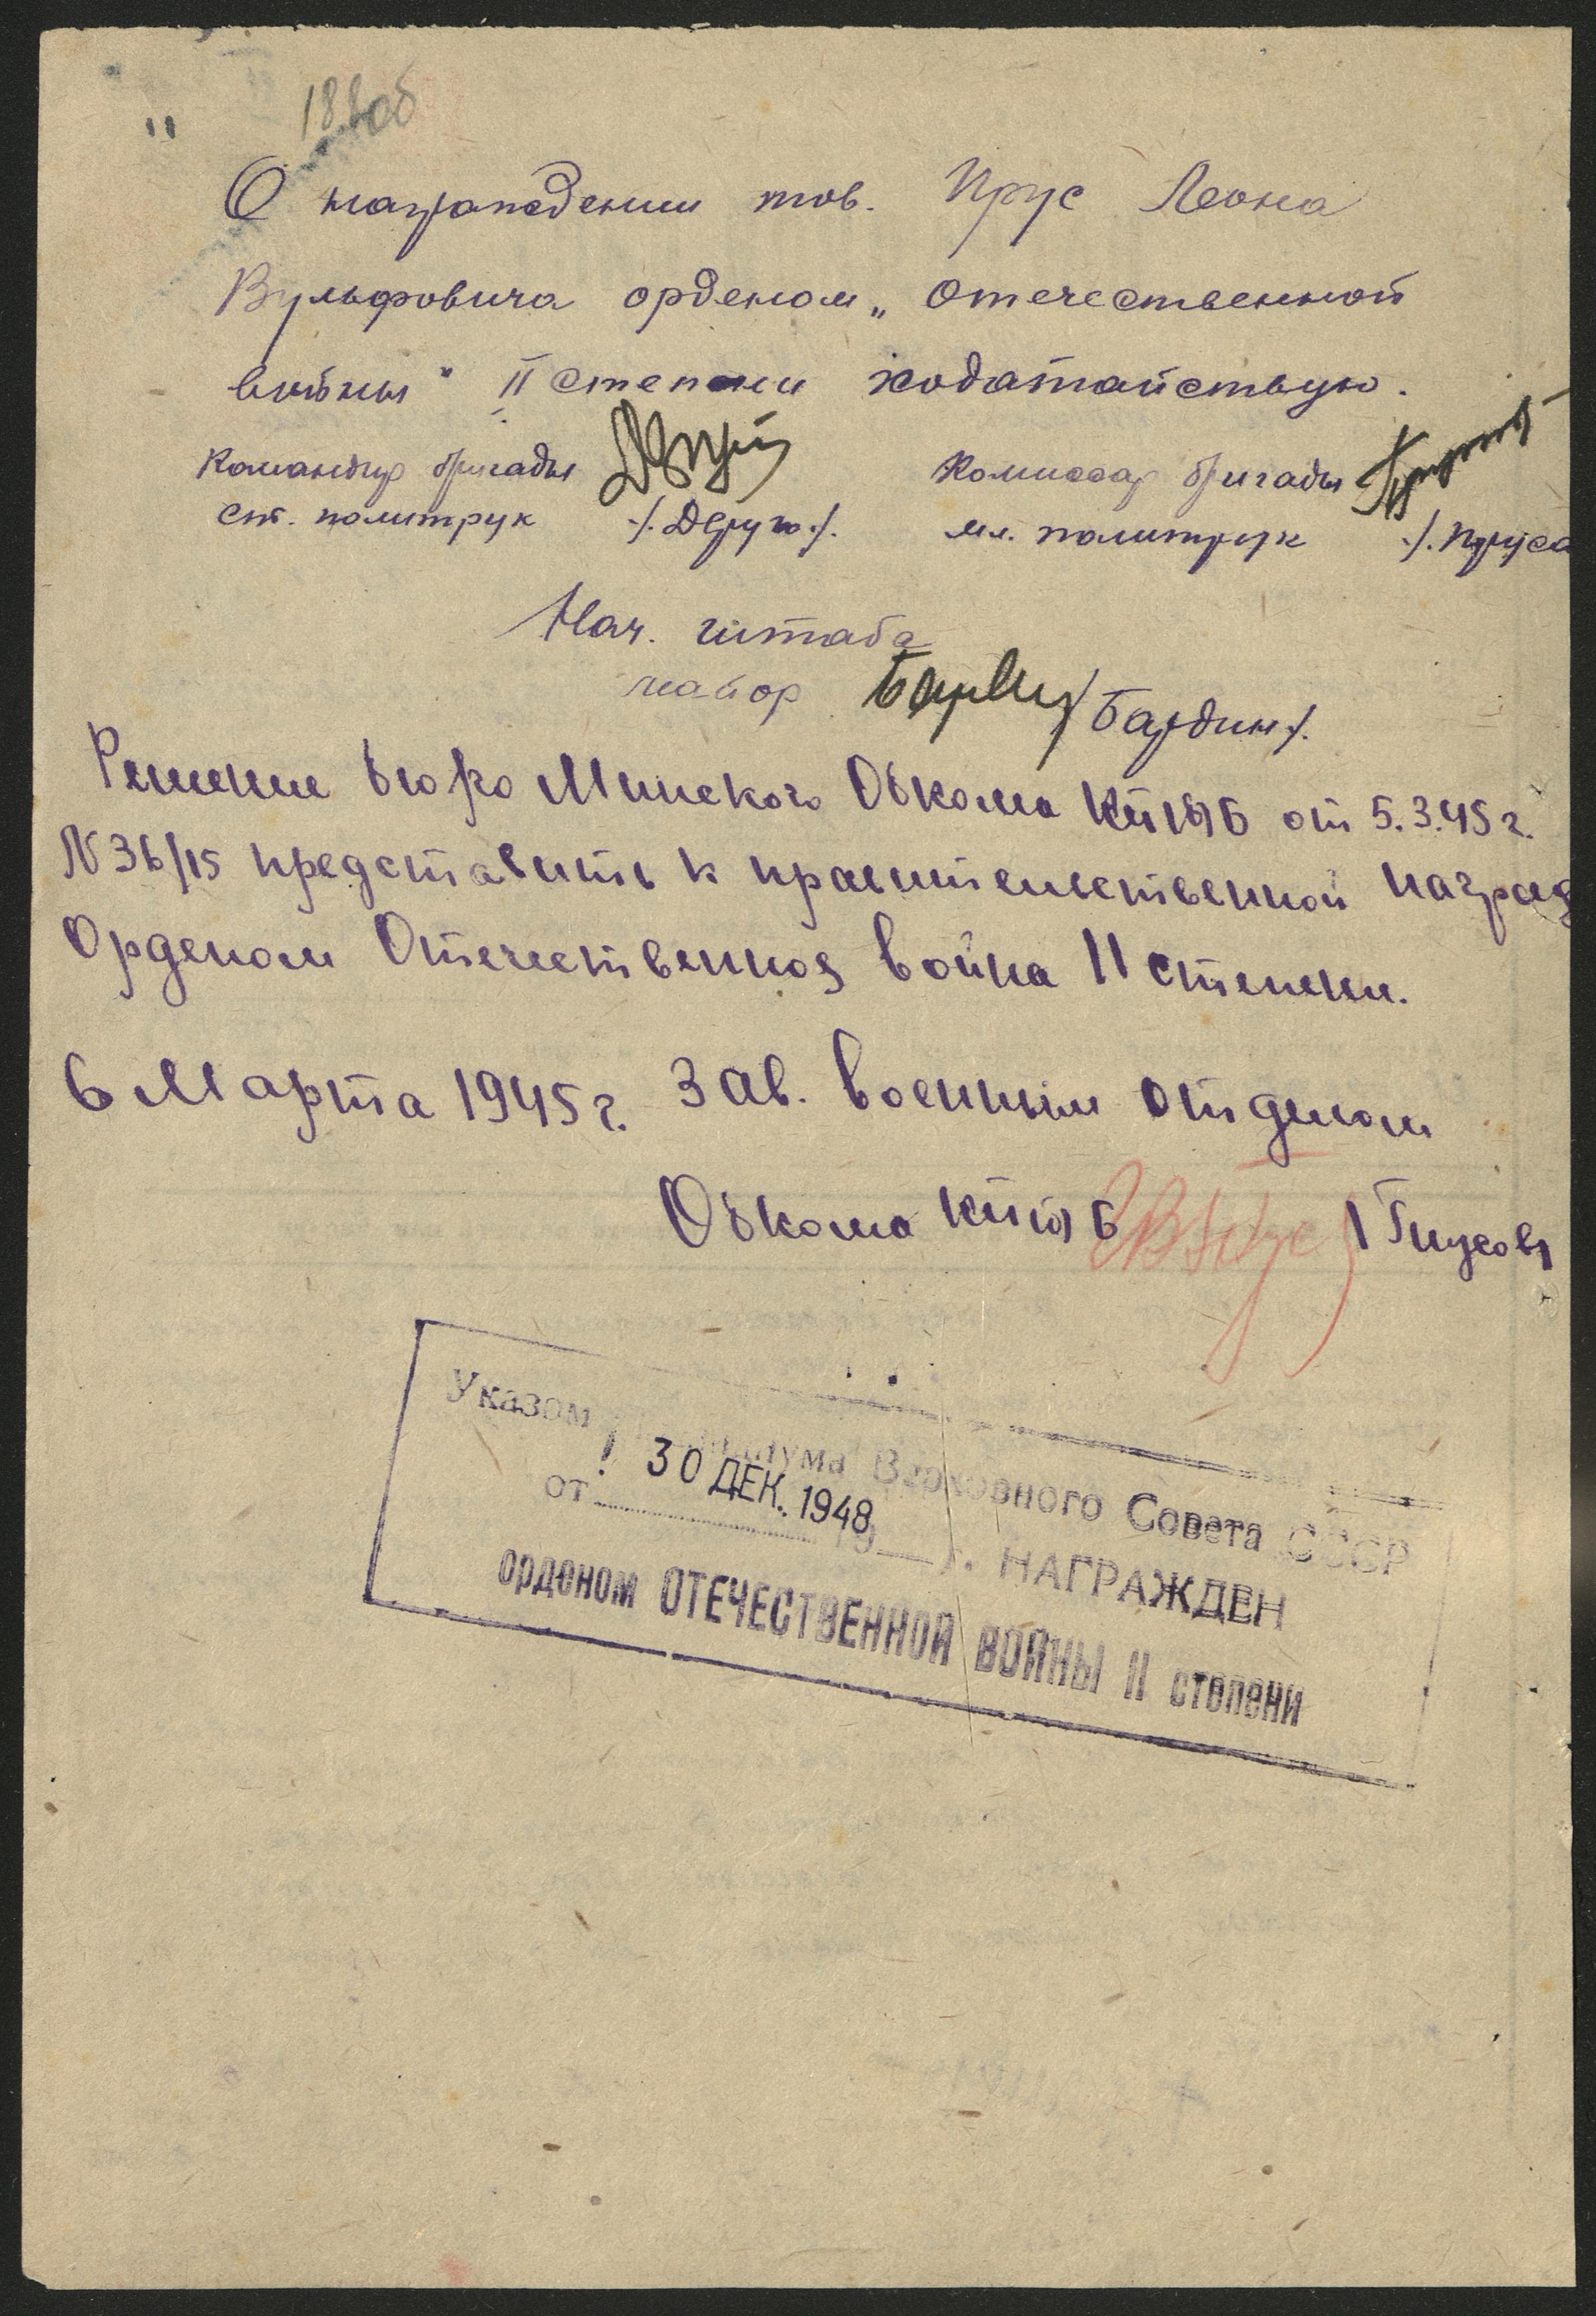 188об
О награждении тов. Прус Леона
Вульфовича орденом „Отечественной
войны" II степени ходатайствую.
Командир бригады
ст. политрук /. Деруго /.
Комиссар бригады
мл. политрук /. Пруса
Нач. штаба
майор / Бардин /.
Решение бюро Минского Обкома КП(б)Б от 5.3.45 г.
N 36/15 представить к правительственной наград
Орденом Отечественная война II степени.
6 Марта 1945 г. Зав. военным отделом
Обкома КП(б)Б
Указом Президиума Верховного Совета СССР
от 30 ДЕК. 1948 19 г. НАГРАЖДЕН
орденом ОТЕЧЕСТВЕННОЙ ВОЙНЫ II степени